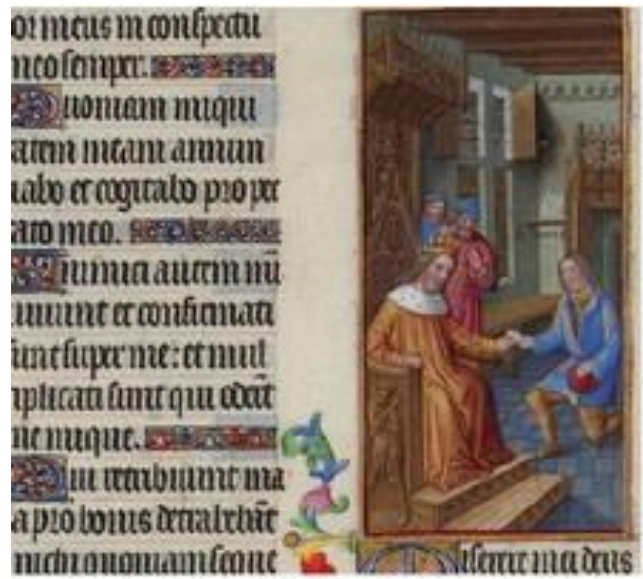 or meus in conspectu
meo semper.
Quoniam iniqui
tatem meam annun
tiabo et cogitabo pro pec
cato meo.
Inimici autem mei
uiuunt et confirmati
sunt super me: et mul
tiplicati sunt qui oderūt
me inique.
Qui retribuunt ma
la pro bonis detrahebāt
michi quoniam seque
Miserere mei deus